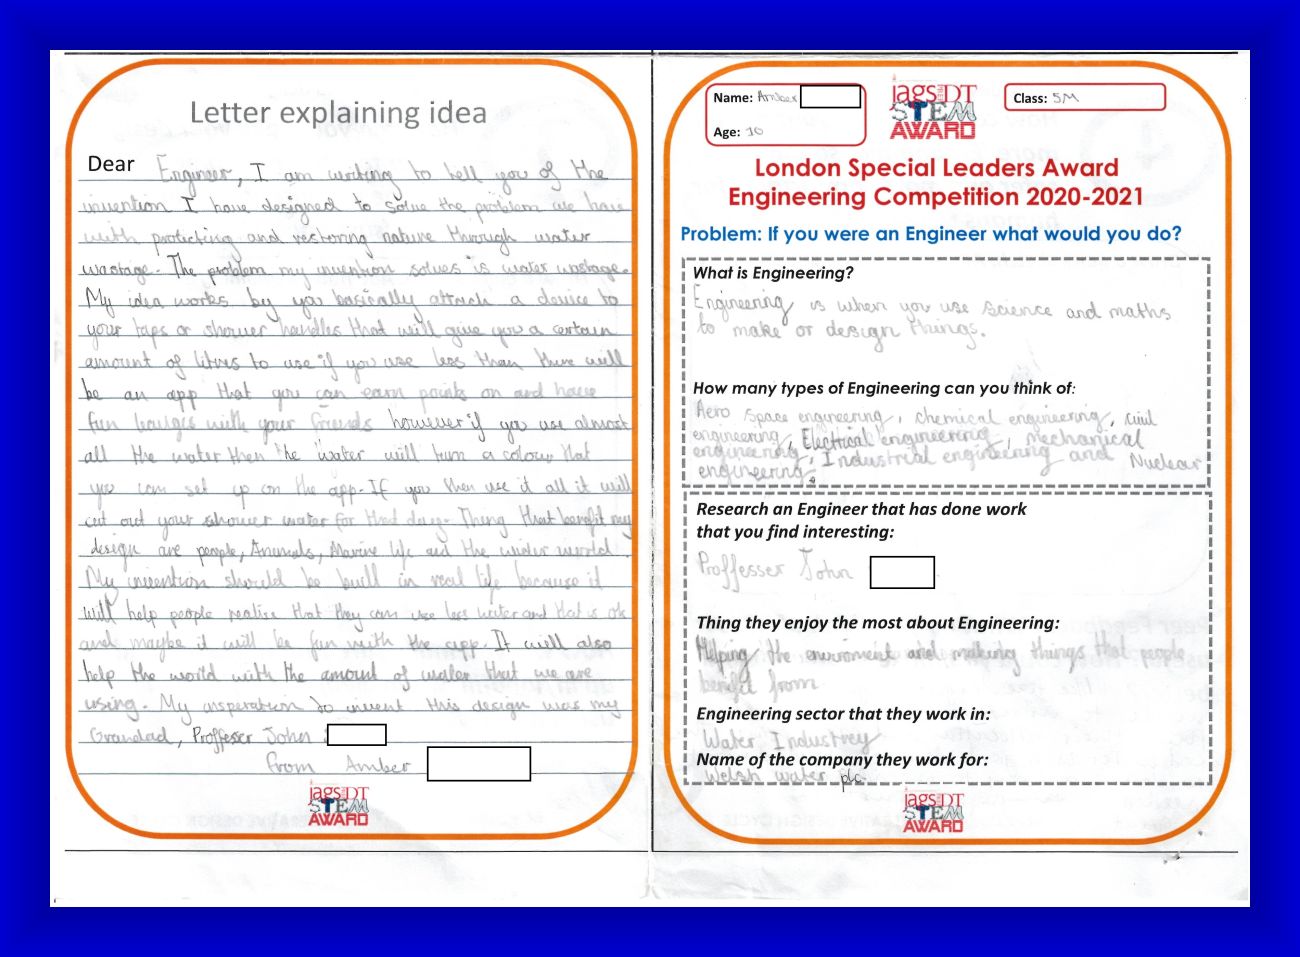 Letter explaining idea
Dear Engineer, I am writing to tell you of the
invention I have designed to solve the problem we have
with protecting and restoring nature through water
wastage. The problem my invention solves is water wastage.
My idea works by you basically attach a device to
your taps or shower handles that will give you a certain
amount of litres to use if you use less than there will
be an app that you can earn points on and have
fun with your friends however if you use almost
all the water then the water will turn a colour that
you can set up on the app. If you then use it all it will
cut out your shower water for that day. Thing that benefit my
design are people, Animals, Marine life and the wider world.
My invention should be built in real life because it
will help people realise that they can use less water and that is ok
and maybe it will be fun with the app. It will also
help the world with the amount of water that we are
using. My insperation to invent this design was my
Grandad, Proffeser John
from Amber
jagsDT
STEM
AWARD
Name: Amber
Age: 10
jagsDT
STEM
AWARD
Class: 5M
London Special Leaders Award
Engineering Competition 2020-2021
Problem: If you were an Engineer what would you do?
What is Engineering?
Engineering is when you use science and maths
to make or design things.
How many types of Engineering can you think of:
Aero space engineering, chemical engineering, civil
engineering, Electrical engineering, mechanical
engineering, Industrial engineering and Nuclear
engineering.
Research an Engineer that has done work
that you find interesting:
Proffesser John
Thing they enjoy the most about Engineering:
Helping the enviroment and making things that people
benefit from
Engineering sector that they work in:
Water Industrey
Name of the company they work for:
Welsh water plc
jagsDT
STEM
AWARD